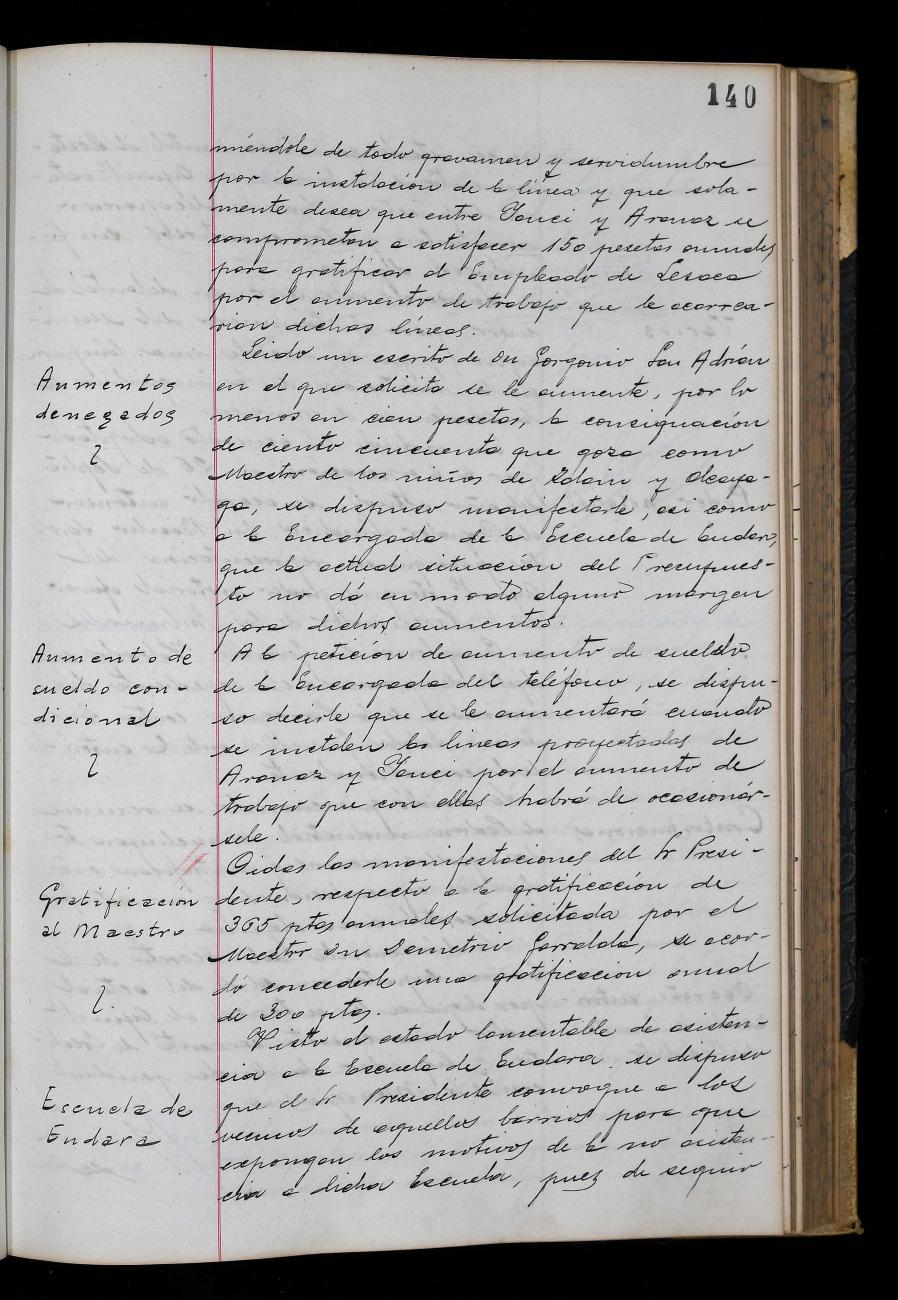 140
niéndole de todo gravamen y servidumbre
por la instalación de la línea y que sola-
mente desea que entre Yanci y Aranaz se
comprometan a satisfacer 150 pesetas anuales
para gratificar al Empleado de Lesaca
por el aumento de trabajo que le acorrea-
rian dichas líneas.
Aumentos
denegados
Leido un escrito de Dn Gorgonio San Adrián
en el que solicita se le aumente, por lo
menos en cien pesetas, la consignación
de ciento cincuenta que goza como
Maestro de los niños de Zalain y Alcaya-
ga, se dispuso manifestarle, asi como
a la Encargada de la Escuela de Endara,
que la actual situación del Presupues-
to no dá en modo alguno margen
para dichos aumentos.
Aumento de
sueldo con-
dicional
A la petición de aumento de sueldo
de la Encargada del teléfono, se dispu-
so decirle que se le aumentará cuando
se instalen las lineas proyectadas de
Aranaz y Yanci por el aumento de
trabajo que con ellas habrá de ocasionár-
sele.
Gratificación
al Maestro
Oidas las manifestaciones del Sr Presi-
dente, respecto a la gratificación de
365 ptas anuales solicitada por el
Maestro Dn Demetrio Garralda, se acor-
dó concederle una gratificacion anual
de 300 ptas.
Escuela de
Endara
Visto el estado lamentable de asisten-
cia a la Escuela de Endara se dispuso
que el Sr Presidente convoque a los
vecinos de aquellos barrios para que
expongan los motivos de la no asisten-
cia a dicha Escuela, pues de seguir